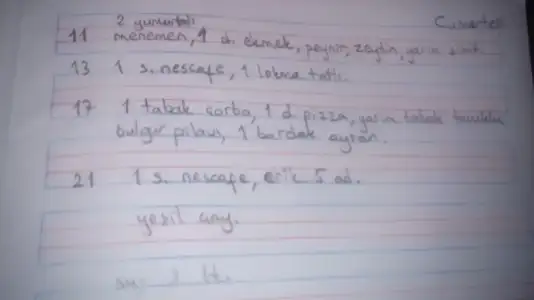 2 yumurtalı C.martesi
11 menemen, 1 d. ekmek, peynir, zeytin, yarım
13 1 s. nescafe, 1 lokma tatlı
17 1 tabak çorba, 1 d. pizza, yarım tabak tavuklu
bulgur pilavı, 1 bardak ayran.
21 1 s. nescafe, erik 5 ad.
yeşil çay.